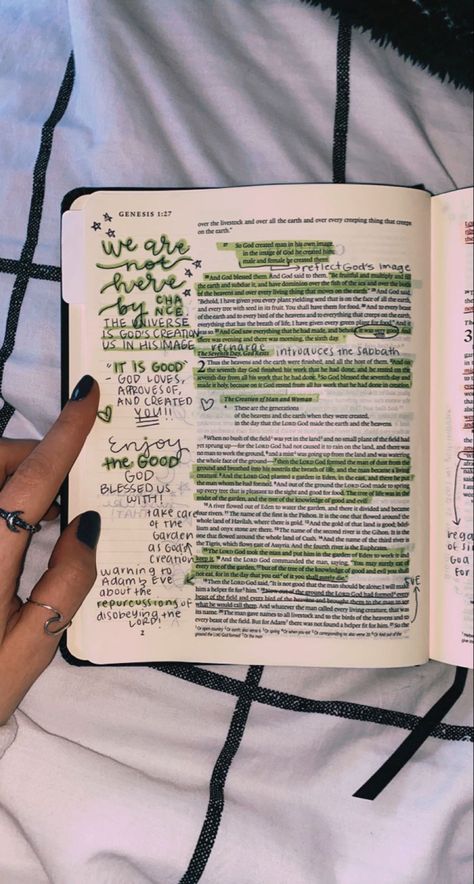 GENESIS 1:27
we are
not
here
by CHANCE
THE UNIVERSE
IS GOD'S CREATION
US IN HIS IMAGE
"IT IS GOOD"
- GOD LOVES,
APROVES OF,
AND CREATED
YOU!!
Enjoy
the GOOD
GOD
BLESSED US
WITH!
take care
of the
Garden
as God's
Creation
warning to
Adam & Eve
about the
repurcussions of
disobeying the
LORD!
2
over the livestock and over all the earth and over every creeping thing that creeps
on the earth."
27 So God created man in his own image,
in the image of God he created him;
male and female he created them.
reflect God's image
28 And God blessed them. And God said to them, "Be fruitful and multiply and fill
the earth and subdue it, and have dominion over the fish of the sea and over the birds
of the heavens and over every living thing that moves on the earth." 29 And God said,
"Behold, I have given you every plant yielding seed that is on the face of all the earth,
and every tree with seed in its fruit. You shall have them for food. 30 And to every beast
of the earth and to every bird of the heavens and to everything that creeps on the earth,
everything that has the breath of life, I have given every green plant for food." And it
was so. 31 And God saw everything that he had made, and behold, it was very good. And
there was evening and there was morning, the sixth day.
recharge
introduces the Sabbath
The Seventh Day, God Rests
2 Thus the heavens and the earth were finished, and all the host of them. 2 And on
the seventh day God finished his work that he had done, and he rested on the
seventh day from all his work that he had done. 3 So God blessed the seventh day and
made it holy, because on it God rested from all his work that he had done in creation.
The Creation of Man and Woman
4 These are the generations
of the heavens and the earth when they were created,
in the day that the LORD God made the earth and the heavens.
5 When no bush of the field was yet in the land and no small plant of the field had
yet sprung up—for the LORD God had not caused it to rain on the land, and there was
no man to work the ground, 6 and a mist was going up from the land and was watering
the whole face of the ground— 7 then the LORD God formed the man of dust from the
ground and breathed into his nostrils the breath of life, and the man became a living
creature. 8 And the LORD God planted a garden in Eden, in the east, and there he put
the man whom he had formed. 9 And out of the ground the LORD God made to spring
up every tree that is pleasant to the sight and good for food. The tree of life was in the
midst of the garden, and the tree of the knowledge of good and evil.
10 A river flowed out of Eden to water the garden, and there it divided and became
four rivers. 11 The name of the first is the Pishon. It is the one that flowed around the
whole land of Havilah, where there is gold. 12 And the gold of that land is good; bdel-
lium and onyx stone are there. 13 The name of the second river is the Gihon. It is the
one that flowed around the whole land of Cush. 14 And the name of the third river is
the Tigris, which flows east of Assyria. And the fourth river is the Euphrates.
15 The LORD God took the man and put him in the garden of Eden to work it and
keep it. 16 And the LORD God commanded the man, saying, "You may surely eat of
every tree of the garden, 17 but of the tree of the knowledge of good and evil you shall
not eat, for in the day that you eat of it you shall surely die."
18 Then the LORD God said, "It is not good that the man should be alone; I will make
him a helper fit for him." 19 Now out of the ground the LORD God had formed every
beast of the field and every bird of the heavens and brought them to the man to see
what he would call them. And whatever the man called every living creature, that was
its name. 20 The man gave names to all livestock and to the birds of the heavens and to
every beast of the field. But for Adam there was not found a helper fit for him. 21 So the
EVE
3
rega
of sin
God a
for